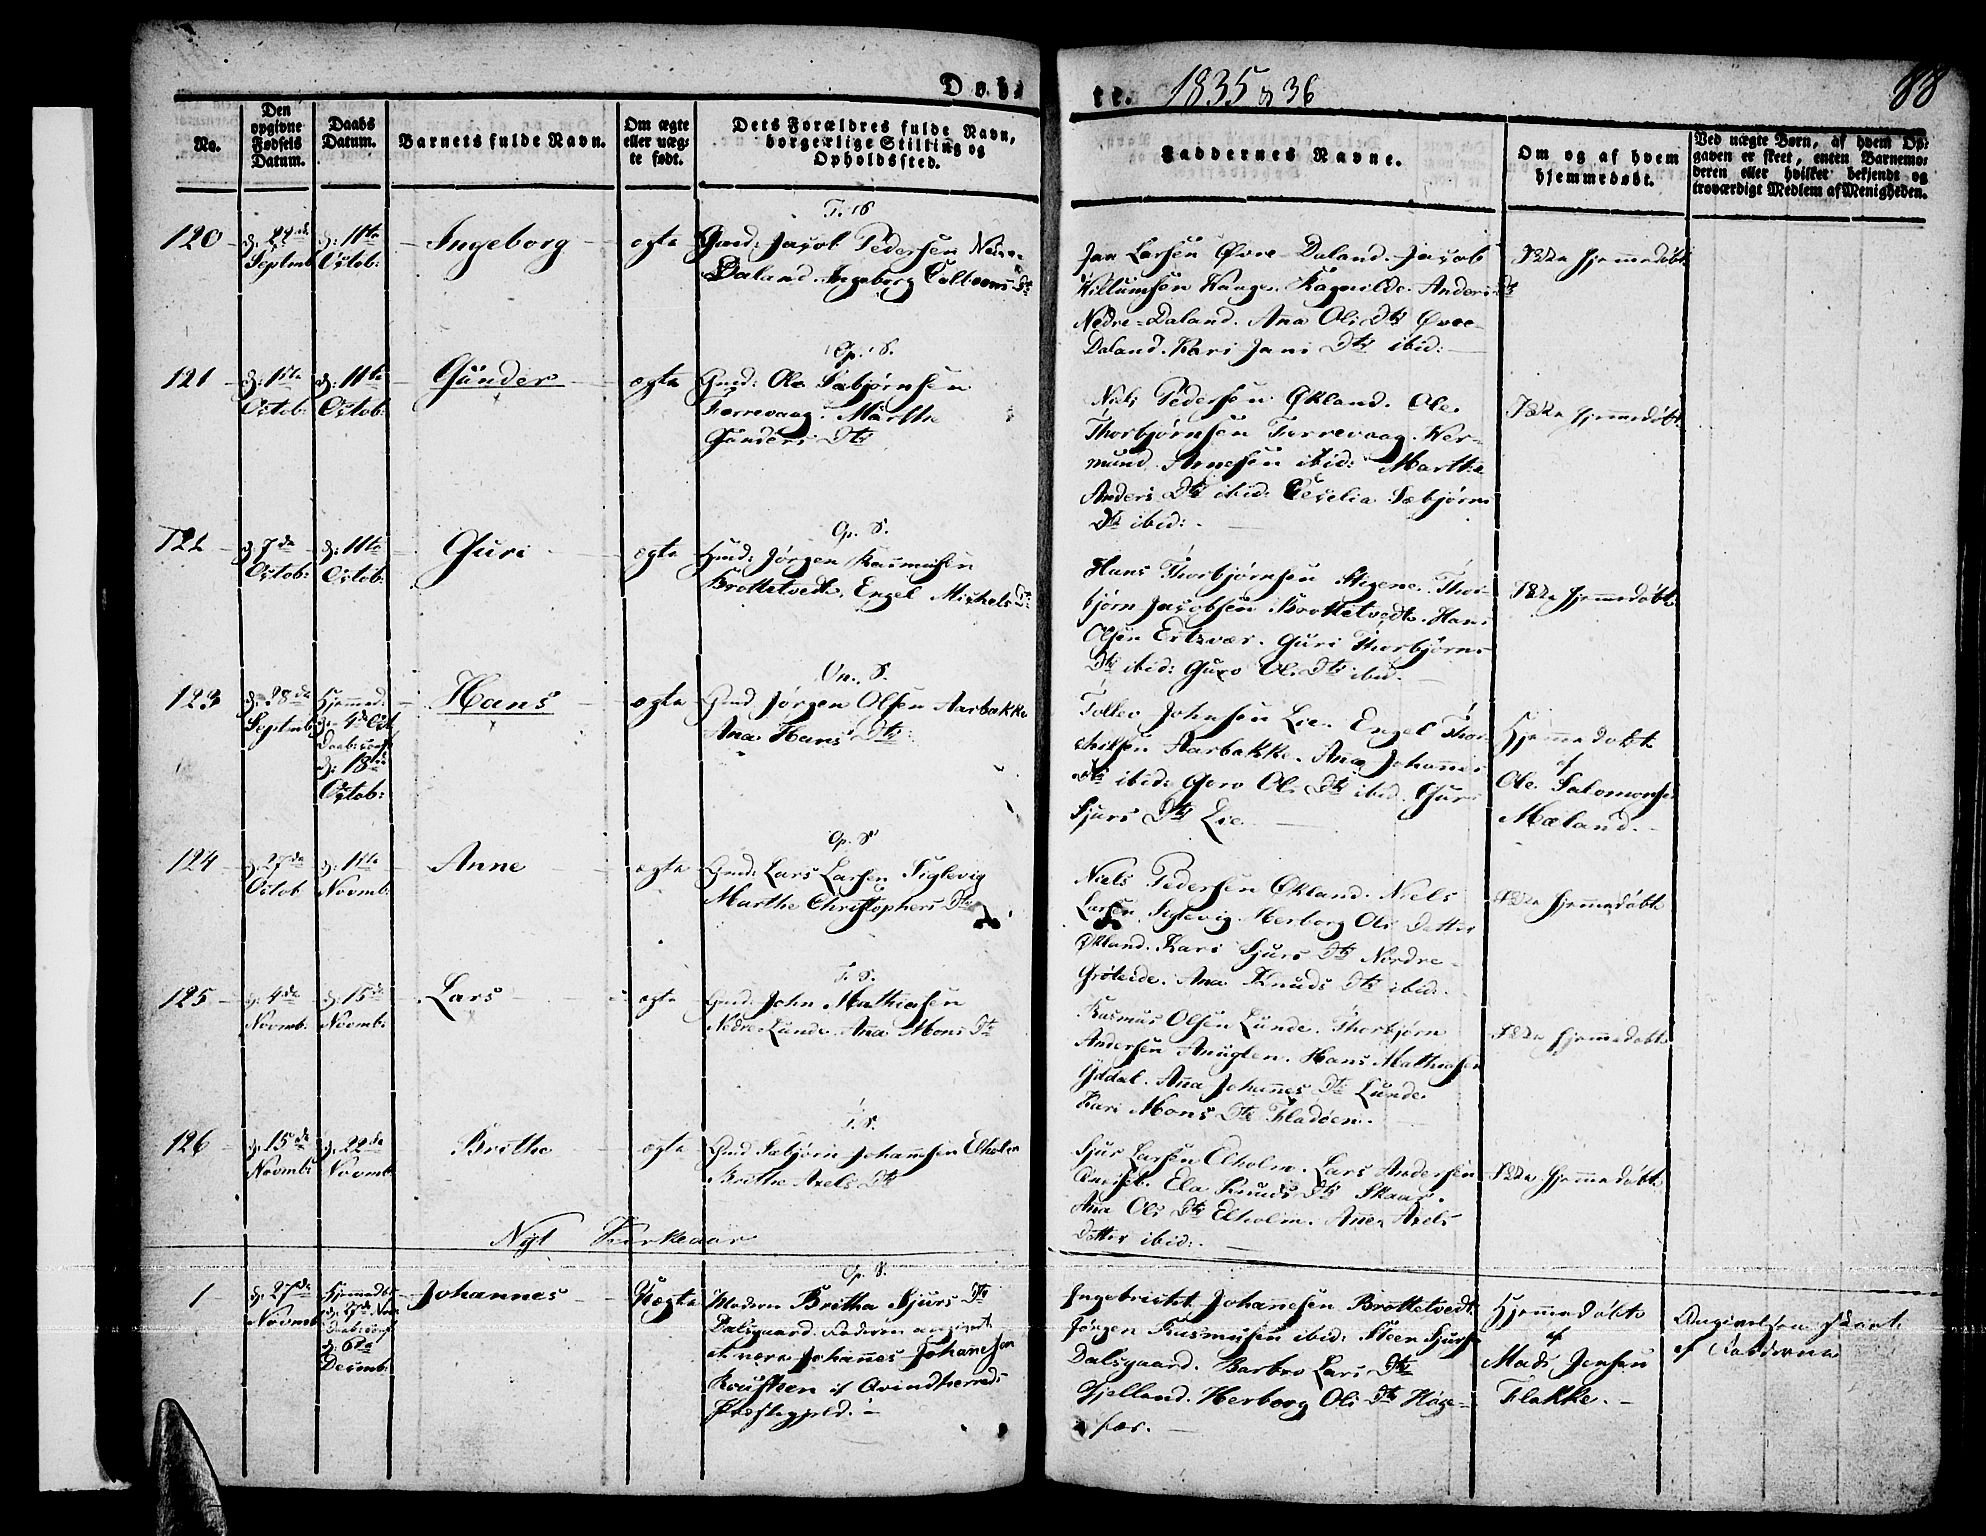 Døb te. 1835 & 36
88
No.
Den opgivne Fødsels Datum.
Daabs Datum.
Barnets fulde Navn.
Om ægte eller uæg- te født.
Dets Forældres fulde Navn, borgerlige Stilling og Opholdssted.
Faddernes Navne.
Om og af hvem hjemmedøbt.
Ved uægte Børn, af hvem Op- gaven er skeet, enten Barnemo- deren eller hvilket bekjendt og troværdigt Medlem af Menigheden.
120
d: 22de Septmb
d: 11te Octob:
Ingeborg
ægte
F. S.
Gmd: Jacob Pedersen Nedre
Daland. Ingeborg Dtr
Jan Larsen Øvre Daland. Jacob
Willumsen Hauge. Ragnilde Anders Dtr
Nedre-Daland. Ana Ols Dtr Øvre-
Daland. Kari Jans Dtr ibid:
Ikke hjemmedøbt
121
d: 1ste Octob:
d: 11te Octob:
Gunder
ægte
Op. S.
Gmd: Ole Sæbjørnsen
Førrevaag. Marthe
Gunders Dtr
Niels Pedersen Økland. Ole
Thorbjørnsen Førrevaag. Wer-
mund Arnesen ibid: Marthe
Anders Dtr ibid: Cecelia Sæbjørns
Dtr ibid:
Ikke hjemmedøbt
122
d: 7de Octob:
d: 11te Octob:
Guri
ægte
Op. S.
Gmd: Jørgen Rasmusen
Brottetvedt. Engel Michels Dtr
Hans Thorbjørnsen Stigene. Thor-
bjørn Jacobsen Brottetvedt. Hans
Olsen Ertzvær. Guri Thorbjørns
Dtr ibid: Guro Ols Dtr ibid.
Ikke hjemmedøbt
123
d: 28de Septmb
Hjemmed: d: 4de Oct Daab: conf d: 18de Octob:
Hans
ægte
Vn. S.
Gmd Jørgen Olsen Aarbakke
Ana Hans Dtr
Tollev Johnsen Lie. Engel Thor-
chilsen Aarbakke. Ana Johannes
Dtr ibid: Goro Ols Dtr ibid. Guri
Sjurs Dtr Lie
Hjemmedøbt
af
Ole Salomonsen
Mæland.
124
d: 27de Octob
d: 1ste Novmb:
Anne
ægte
Op. S
Gmd: Lars Larsen Siglevig
Marthe Christophers Dtr
Niels Pedersen Økland. Niels
Larsen Siglevig. Herborg Ols Datter
Økland. Kari Sjurs Dtr Nordre-
Grøteide. Ana Knuds Dtr ibid:
Ikke hjemmedøbt
125
d: 4de Novmb.
d: 15de Novmb:
Lars
ægte
F. S.
Gmd: John Mathiasen
Nedre Lunde. Ana Mons Dtr
Rasmus Olsen Lunde. Thorbjørn
Andersen Anuglen. Hans Mathiasen
Yddal. Ana Johannes Dtr Lunde.
Kari Mons Dtr Fladøen.
Ikke hjemmedøbt
126
d: 15de Novmb:
d: 22de Novmb:
Brithe
ægte
F. S.
Gmd Sæbjørn Johannesen Elholm
Brithe Axels Dtr
Sjur Larsen Elholm. Lars Andersen
Ela Knuds Dtr Skaar.
Ana Ols Dtr Elholm. Anne Axels
Datter ibid:
Ikke hjemmedøbt
Nyt Kirkeaar
1
d: 27de Novmb
Hjemmedøbt d: 27de Nov Daab: conf d: 6te Decmb:
Johannes
Uægte
Op. S.
Moderen Britha Sjurs Dtr
Dalsgaard. Faderen angivet
at være Johannes Johannesen
i Qvindherreds
Præstegjeld.
Ingebrictst Johannesen Brottetvedt.
Jørgen Rasmusen ibid: Steen Sjursen
Dalsgaard. Barbro Lars Dtr
Gjelland. Herborg Ols Dtr Høge-
Hjemmedøbt
af
Mads Jensen
Flakke.
Angivelsen skeet
af Fadderne